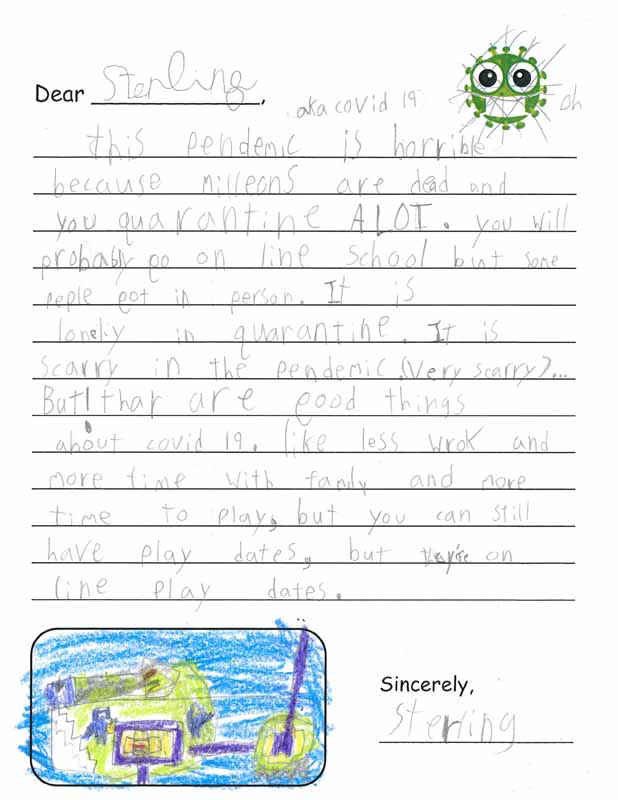 Dear Sterling,
aka covid 19 oh
this pendemic is horrible
because milleons are dead and
you quarantine ALOT. you will
probably go on line school but some
peple got in person. It is
lonely in quarantine. It is
scarry in the pendemic.(Very scarry)...
But! thar are good things
about covid 19. like less wrok and
more time with family and more
time to play, but you can still
have play dates, but they're on
line play dates.
Sincerely,
Sterling